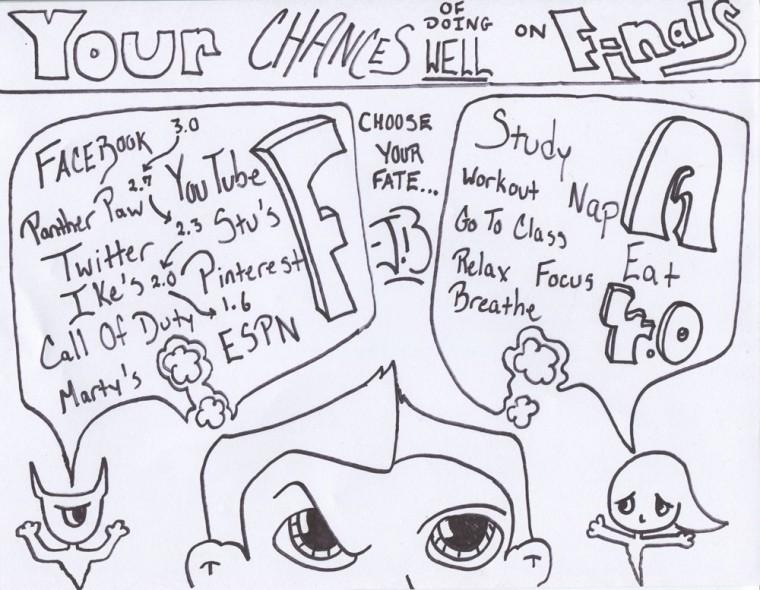 YOUR CHANCES OF DOING WELL ON Finals
FACEBOOK 3.0
Panther Paw 2.7 YouTube
Twitter 2.3 Stu's
IKe's 2.0 Pinterest
Call Of Duty 1.6
Marty's ESPN
F
CHOOSE
YOUR
FATE...
Study
Workout Nap
A
Go To Class
Relax Focus Eat
Breathe
4.0